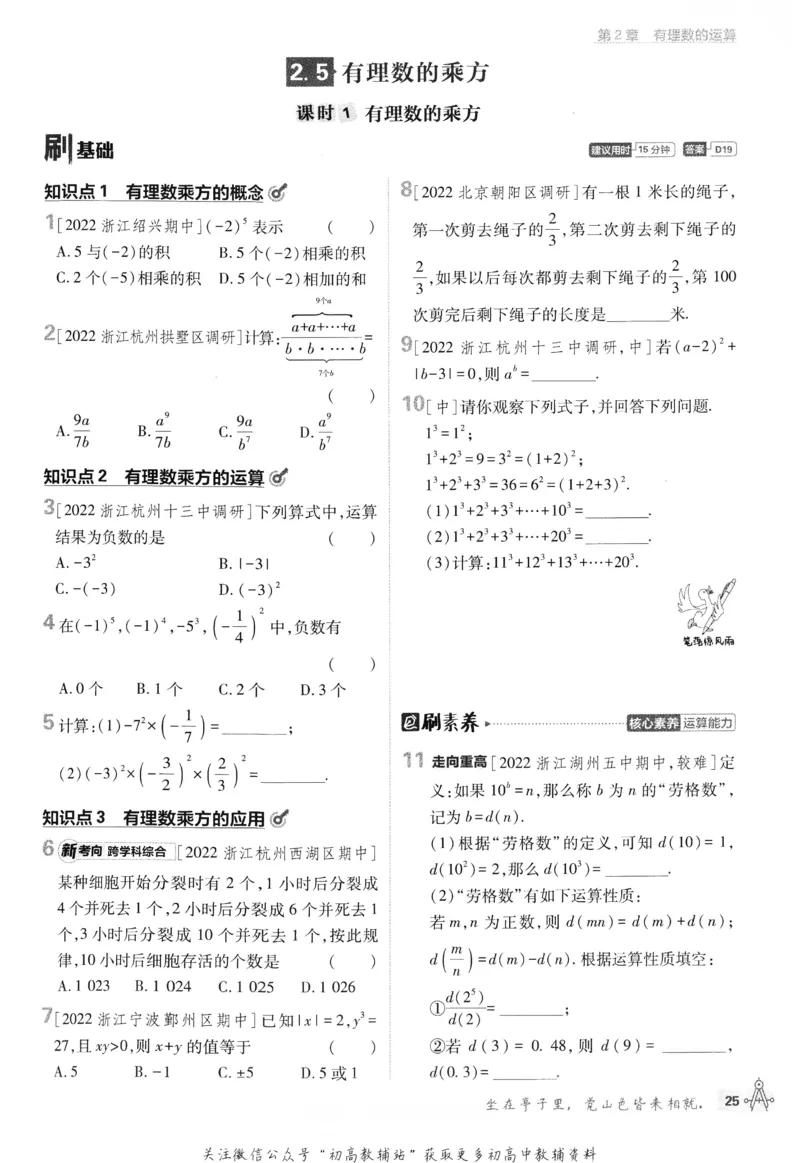 第2章 有理数的运算
2.5 有理数的乘方
课时1 有理数的乘方
刷基础
建议用时 15分钟 答案 D19
知识点1 有理数乘方的概念
1[2022浙江绍兴期中](-2)⁵表示 ( )
A.5与(-2)的积 B.5个(-2)相乘的积
C.2个(-5)相乘的积 D.5个(-2)相加的和
2[2022浙江杭州拱墅区调研]计算:$\frac{\overbrace{a+a+\cdots+a}^{9个a}}{\underbrace{b\cdot b\cdot\cdots\cdot b}_{7个b}}$=
( )
A.$\frac{9a}{7b}$ B.$\frac{a^9}{7b}$ C.$\frac{9a}{b^7}$ D.$\frac{a^9}{b^7}$
知识点2 有理数乘方的运算
3[2022浙江杭州十三中调研]下列算式中,运算
结果为负数的是 ( )
A.-3² B.|-3|
C.-(-3) D.(-3)²
4在(-1)⁵,(-1)⁴,-5³,$\left(-\frac{1}{4}\right)^2$中,负数有
( )
A.0个 B.1个 C.2个 D.3个
5计算:(1)-7²×$\left(-\frac{1}{7}\right)$=________;
(2)(-3)²×$\left(-\frac{3}{2}\right)^2$×$\left(\frac{2}{3}\right)^2$=________.
知识点3 有理数乘方的应用
6 新考向 跨学科综合 [2022浙江杭州西湖区期中]
某种细胞开始分裂时有2个,1小时后分裂成
4个并死去1个,2小时后分裂成6个并死去1
个,3小时后分裂成10个并死去1个,按此规
律,10小时后细胞存活的个数是 ( )
A.1 023 B.1 024 C.1 025 D.1 026
7[2022浙江宁波鄞州区期中]已知|x|=2,y³=
27,且xy>0,则x+y的值等于 ( )
A.5 B.-1 C.±5 D.5或1
8[2022北京朝阳区调研]有一根1米长的绳子,
第一次剪去绳子的$\frac{2}{3}$,第二次剪去剩下绳子的
$\frac{2}{3}$,如果以后每次都剪去剩下绳子的$\frac{2}{3}$,第100
次剪完后剩下绳子的长度是________米.
9[2022浙江杭州十三中调研,中]若(a-2)²+
|b-3|=0,则aᵇ=________.
10[中]请你观察下列式子,并回答下列问题.
1³=1²;
1³+2³=9=3²=(1+2)²;
1³+2³+3³=36=6²=(1+2+3)².
(1)1³+2³+3³+…+10³=________.
(2)1³+2³+3³+…+20³=________.
(3)计算:11³+12³+13³+…+20³.
笔落惊风雨
刷素养
核心素养 运算能力
11 走向重高[2022浙江湖州五中期中,较难]定
义:如果10ᵇ=n,那么称b为n的“劳格数”,
记为b=d(n).
(1)根据“劳格数”的定义,可知d(10)=1,
d(10²)=2,那么d(10³)=________.
(2)“劳格数”有如下运算性质:
若m,n为正数,则d(mn)=d(m)+d(n);
$d\left(\frac{m}{n}\right)$=d(m)-d(n).根据运算性质填空:
①$\frac{d(2^5)}{d(2)}$=________;
②若d(3)=0.48,则d(9)=________,
d(0.3)=________.
坐在亭子里,觉山色皆来相就.
25
关注微信公众号“初高教辅站”获取更多初高中教辅资料